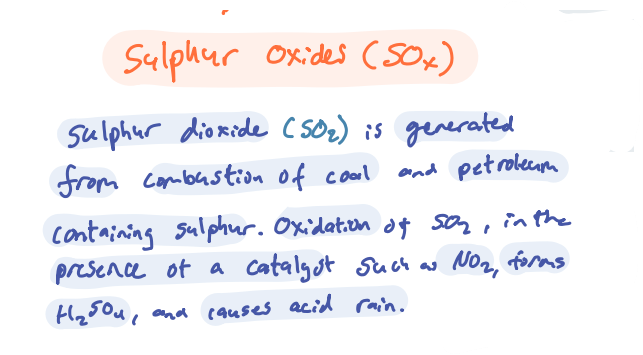 Sulphur Oxides (SOₓ)
Sulphur dioxide (SO₂) is generated
from combustion of coal and petroleum
containing sulphur. Oxidation of SO₂, in the
presence of a catalyst such as NO₂, forms
H₂SO₄, and causes acid rain.